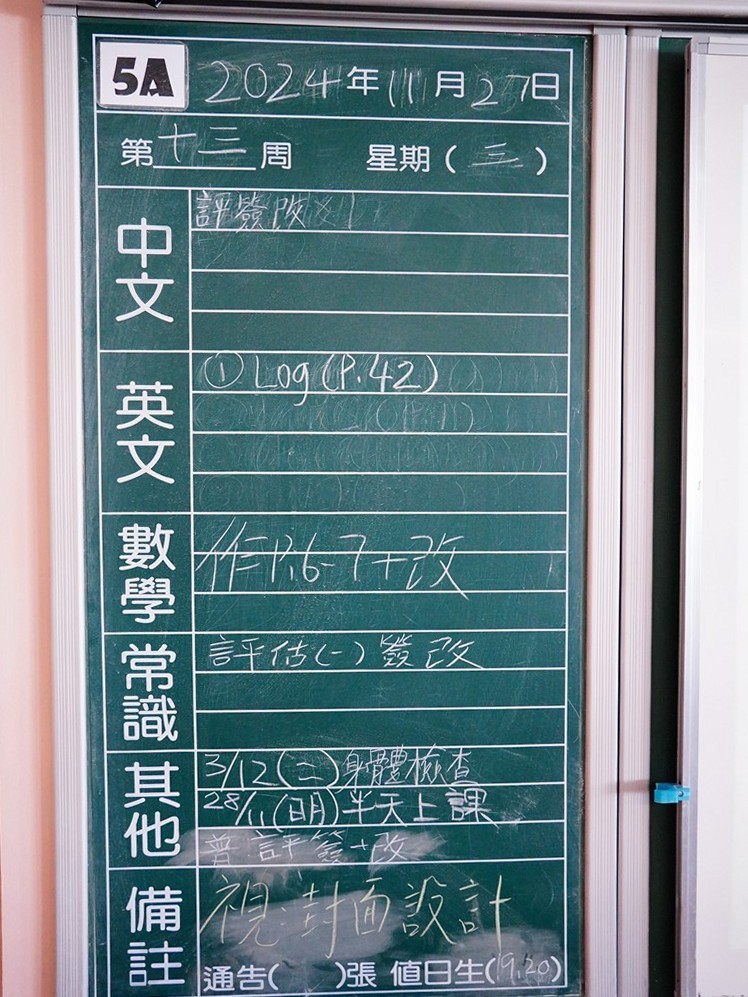 5A 2024年11月27日
第十三周 星期(三)
中文 評簽改
英文 ① Log(P.42)
數學 作P.6-7+改
常識 評估(一)簽改
其他 3/12(二)身體檢查
28/11(明)半天上課
普:評簽+改
備註 視:封面設計
通告( )張 值日生(19.20)